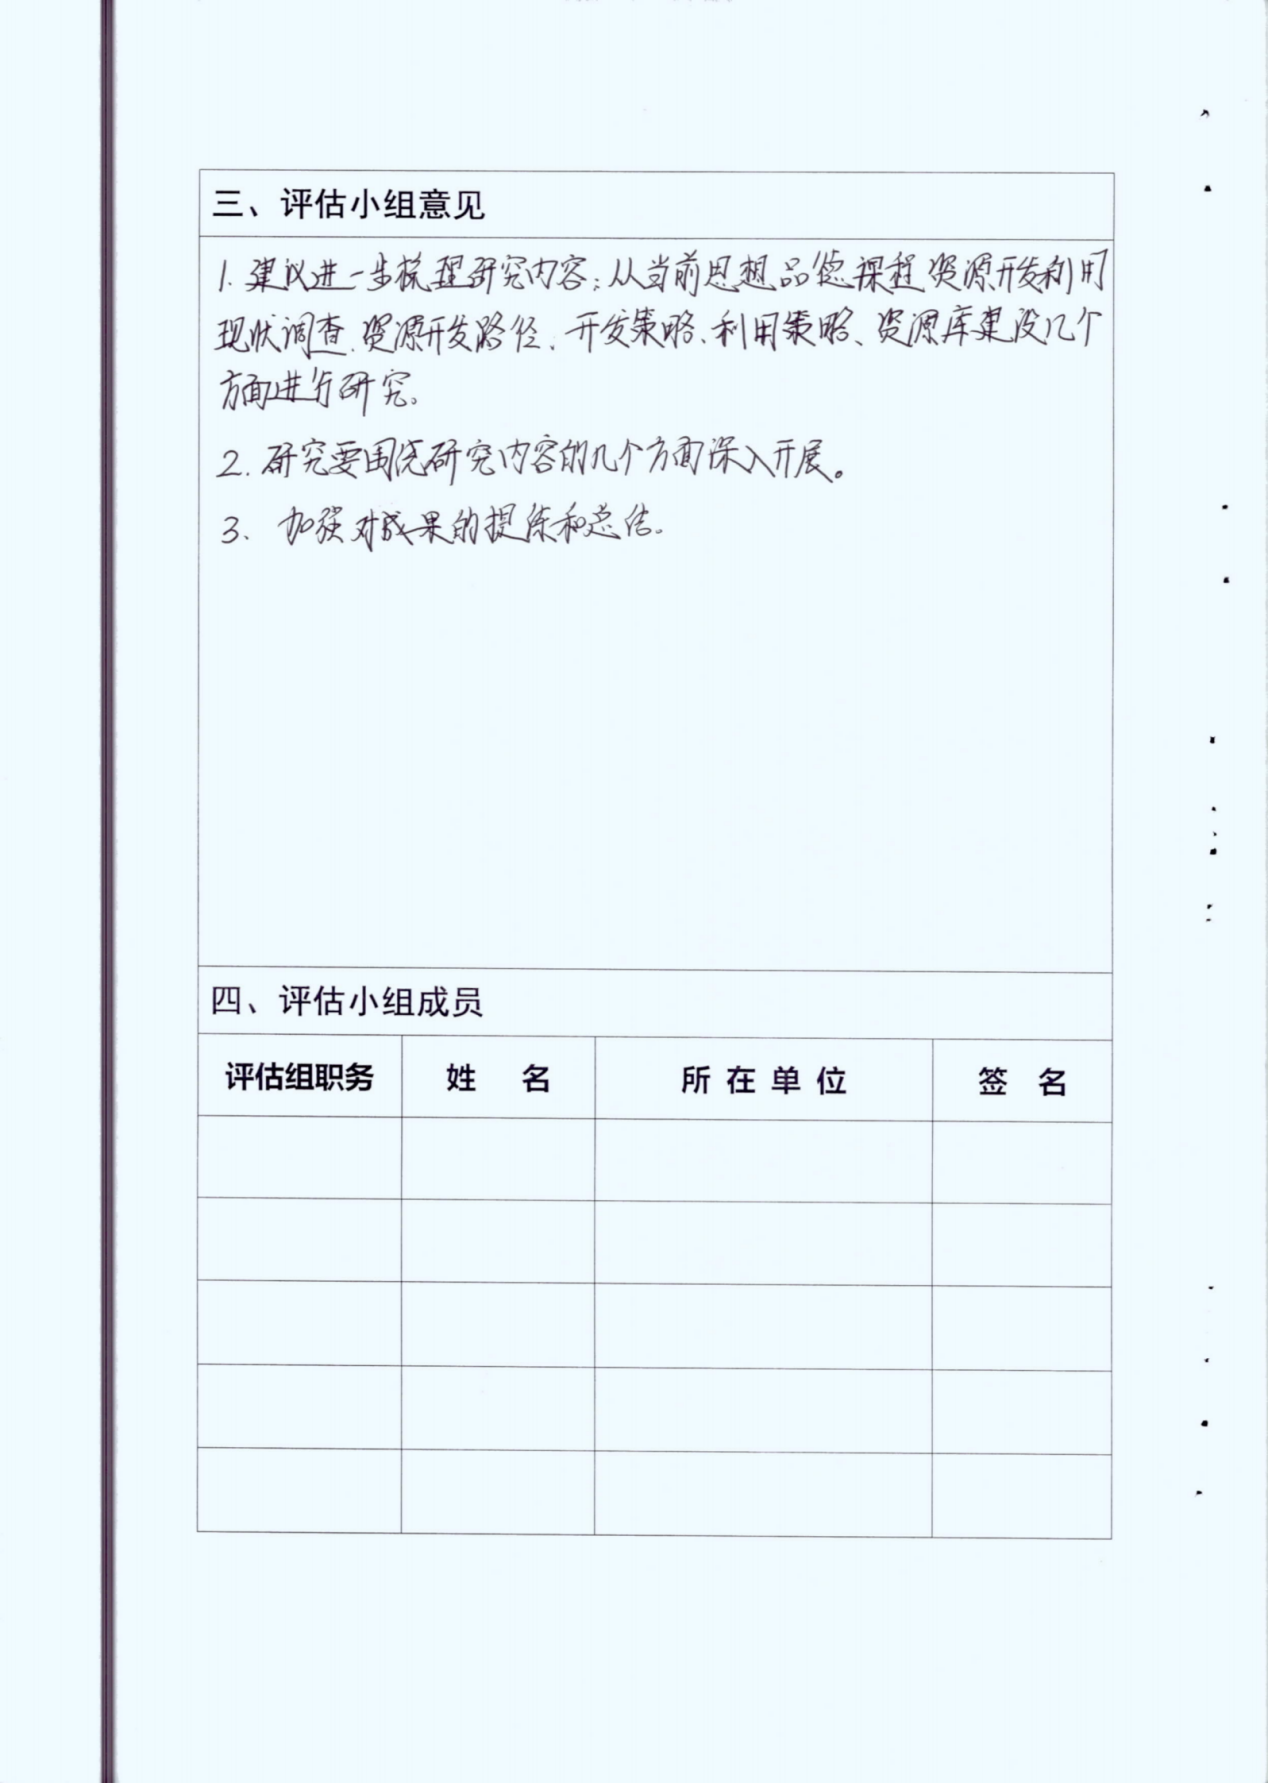 三、评估小组意见
1. 建议进一步梳理研究内容：从当前思想品德课程资源开发利用
现状调查、资源开发路径、开发策略、利用策略、资源库建设几个
方面进行研究。
2. 研究要围绕研究内容的几个方面深入开展。
3、加强对成果的提练和总结。
四、评估小组成员
评估组职务 姓 名 所 在 单 位 签 名